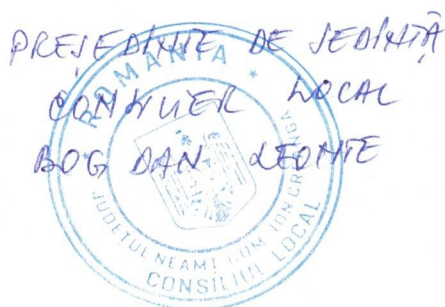 PREȘEDINTE DE ȘEDINȚĂ
CONSILIER LOCAL
BOGDAN LEONTE
ROMANIA *
JUDETUL NEAMȚ COM. ION CREANGA
CONSILIUL LOCAL